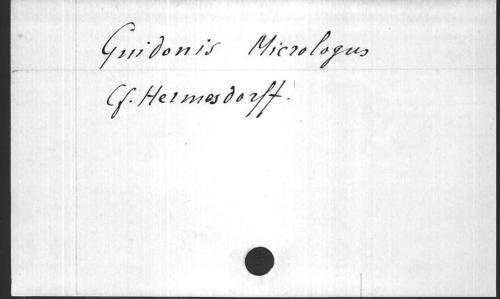 Guidonis Micrologus
Cf. Hermesdorff.